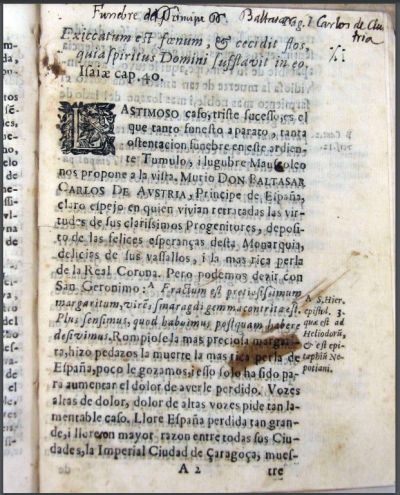 Funebre del Principe D. Baltasar Carlos de Austria
Exiccatum est fœnum, & cecidit flos,
quia spiritus Domini sufflavit in eo.
Isaiæ cap. 40.
LASTIMOSO caso, triste sucesso, es el
que tanto funesto aparato, tanta
ostentacion funebre en este ardien-
te Tumulo, i lugubre Mausoleo
nos propone a la vista. Murio DON BALTASAR
CARLOS DE AVSTRIA, Principe de España,
claro espejo en quien vivian retratadas las vir-
tudes de sus clarissimos Progenitores, deposi-
to de las felices esperanças desta Monarquia,
delicias de sus vassallos, i la mas rica perla
de la Real Corona. Pero podemos dezir con
San Geronimo: A Fractum est preciosissimum
margaritum, virẽs smaragdi gemma contrita est.
Plus sensimus, quod habuimus, postquam habere
desivimus. Rompiose la mas preciosa margari-
ta, hizo pedazos la muerte la mas rica perla de
España, poco le gozamos, i esso solo ha sido pa-
ra aumentar el dolor de averle perdido. Vozes
altas de dolor, dolor de altas vozes pide tan la-
mentable caso. Llore España perdida tan gran-
de, i llore con mayor razon entre todas sus Ciu-
dades, la Imperial Ciudad de Çaragoça, mues-
A 2 tre
A S. Hier.
epistol. 3.
quæ est ad
Heliodorũ,
& est epi-
taphiũ Ne-
potiani.